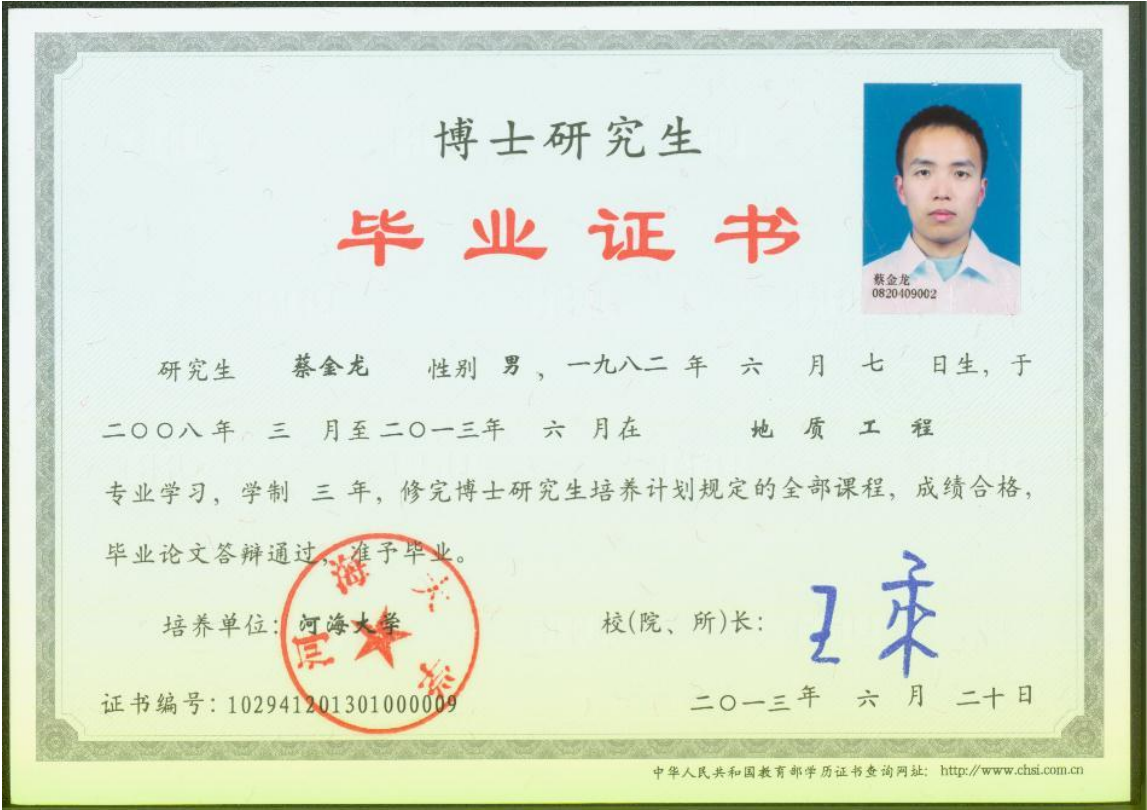 博士研究生
毕业证书
蔡金龙
0820409002
研究生 蔡金龙 性别 男 、一九八二 年 六 月 七 日生，于
二〇〇八 年 三 月至 二〇一三年 六 月在 地质工程
专业学习，学制 三 年，修完博士研究生培养计划规定的全部课程，成绩合格，
毕业论文答辩通过，准予毕业。
河海大学
培养单位：河海大学 校(院、所)长：
证书编号：102941201301000009 二〇一三 年 六 月 二十 日
中华人民共和国教育部学历证书查询网址： http://www.chsi.com.cn